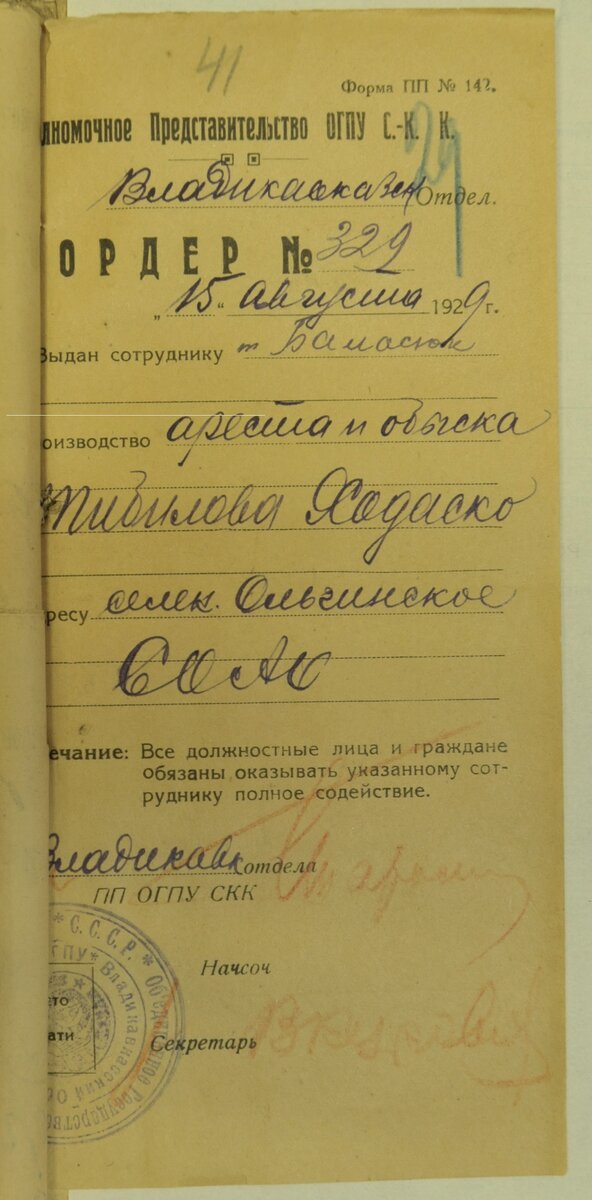 41
Форма ПП № 142.
лномочное Представительство ОГПУ С.-К. К.
29
Владикавказск Отдел.
ОРДЕР № 329
„15“ августа 1929 г.
Выдан сотруднику т
оизводство ареста и обыска
Тибилова
ресу селек. Ольгинское
СОАО
ечание: Все должностные лица и граждане
обязаны оказывать указанному сот-
руднику полное содействие.
Владикавк отдела
ПП ОГПУ СКК
Начсоч
Секретарь
С.С.С.Р. * Объединенное Государстве
ГПУ * Владикавказский Об
сто
ати